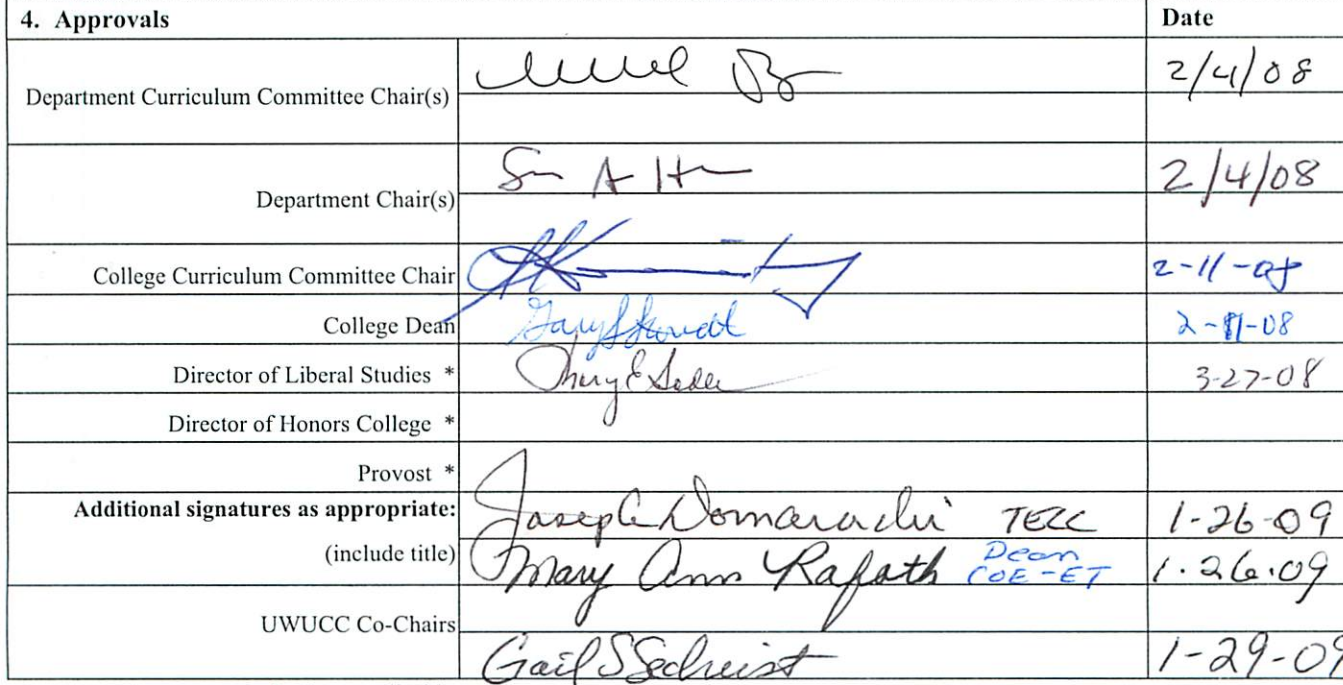 4. Approvals Date
Department Curriculum Committee Chair(s) 2/4/08
Department Chair(s) 2/4/08
College Curriculum Committee Chair 2-11-08
College Dean 2-11-08
Director of Liberal Studies * 3-27-08
Director of Honors College *
Provost *
Additional signatures as appropriate: Joseph Domaracki TECC 1-26-09
(include title) Mary Ann Rafoth Dean COE-ET 1.26.09
UWUCC Co-Chairs
Gail S Sechrist 1-29-09